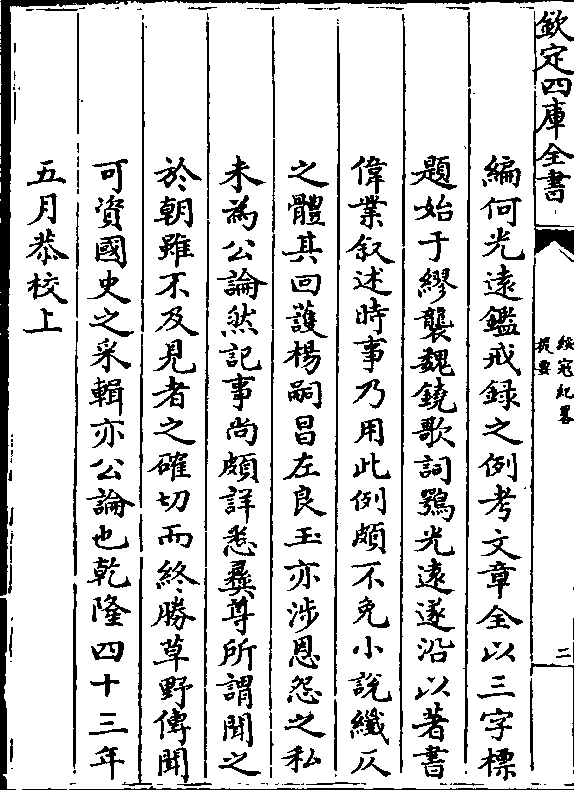 欽定四庫全書
綏冦紀畧
提要
二
編何光遠鑑戒録之例考文章全以三字標
題始于繆襲魏鐃歌詞鶚光遠遂沿以著書
偉業叙述時事乃用此例頗不免小說纎仄
之體其回護楊嗣昌左良玉亦涉恩怨之私
未為公論然記事尚頗詳悉彝尊所謂聞之
於朝雖不及見者之確切而終勝草野傳聞
可資國史之采輯亦公論也乾隆四十三年
五月恭校上